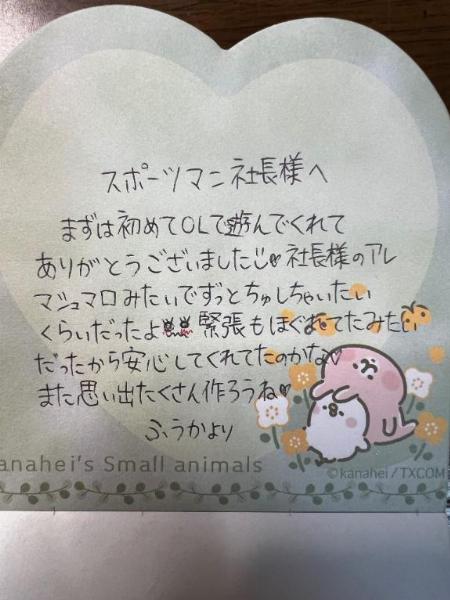 スポーツマン社長様へ
まずは初めてOLで遊んでくれて
ありがとうございました♥社長様のアレ
マシュマロみたいでずっとちゅしちゃいたい
くらいだったよ 緊張もほぐれてたみたい
だったから安心してくれてたのかな♥
また思い出たくさん作ろうね♥
ふうかより
anahei's Small animals
©kanahei/TXCOM